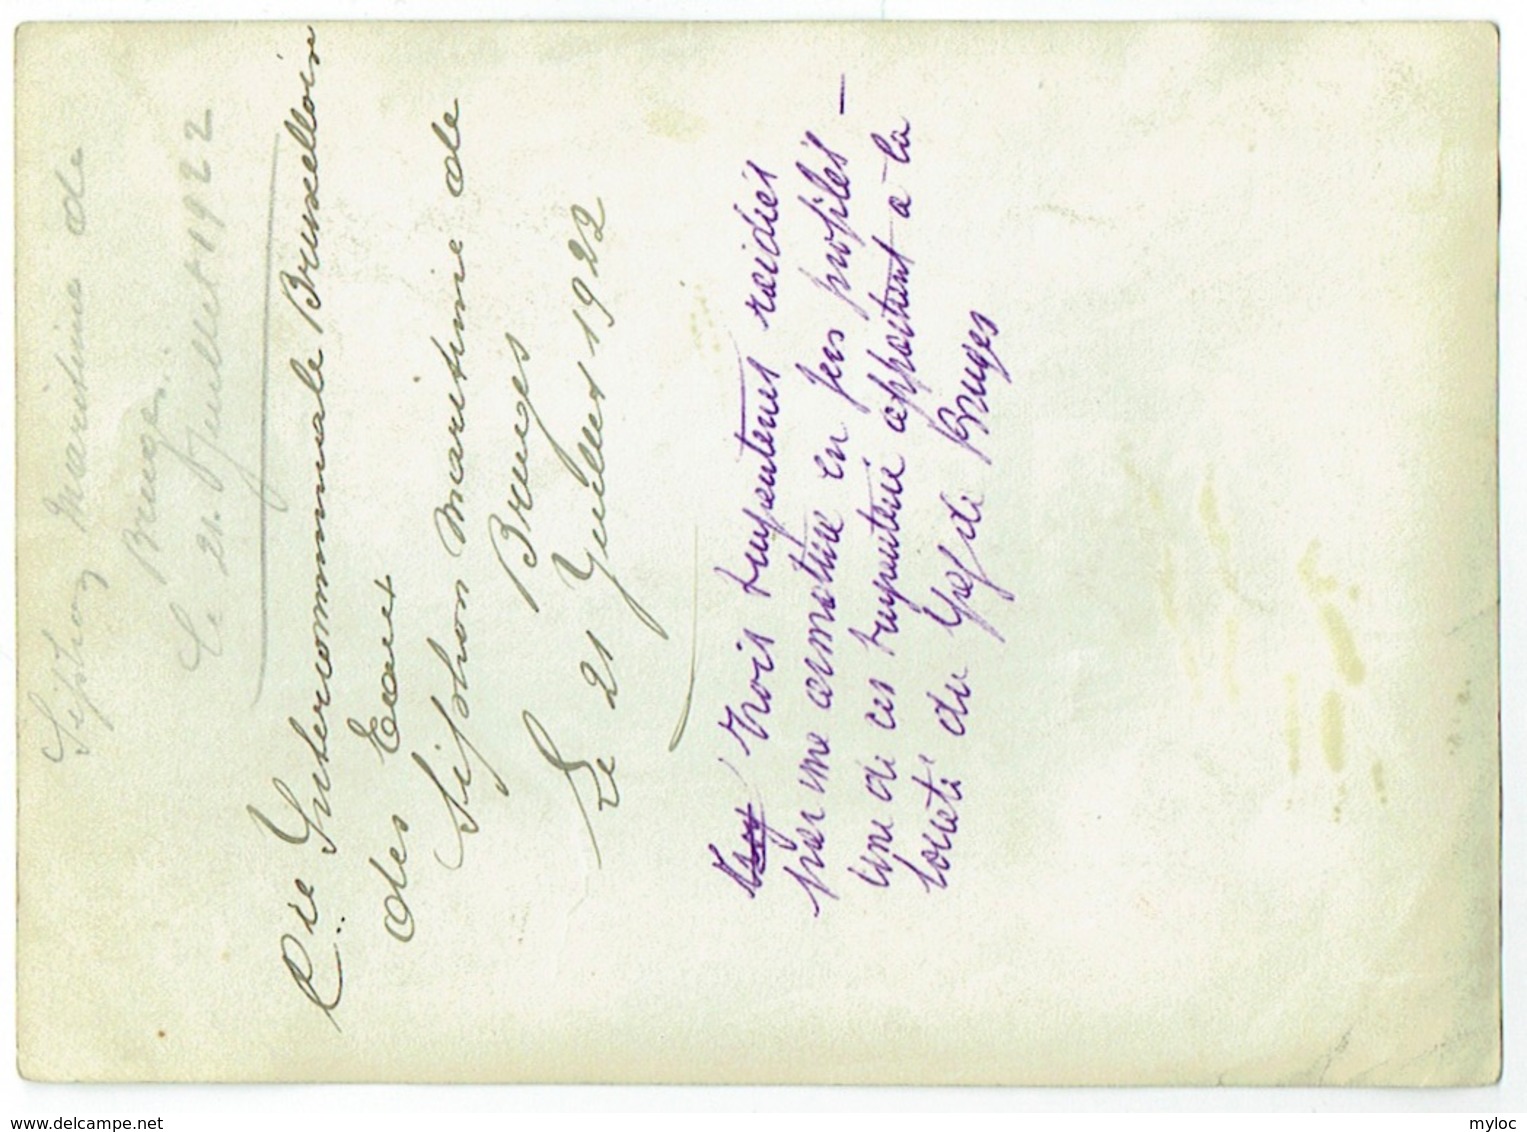 Siphon Maritime de
Bruges.
Le 21. Juillet 1922
Cie Intercommunale Bruxelloise
des Eaux
Siphon Maritime de
Bruges
Le 21 Juillet 1922
Trois turpenteries raidies
par une armature en fers profilés —
Une de ces turpenterie appartient a la
Société du Gaz de Bruges
delcampe.net
myloc